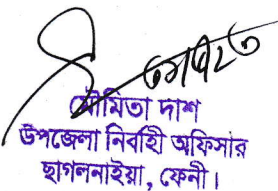 মৌমিতা দাশ
উপজেলা নির্বাহী অফিসার
ছাগলনাইয়া, ফেনী।